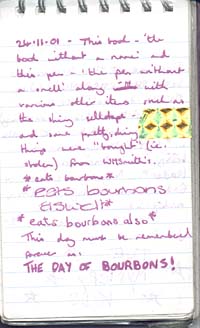 24·11·01 - This book - 'the
book without a name' and
this pen - 'the pen without
a smell' along with
various other items such as
the shiny sellotape
and some pretty, shiny
things were "bought" (i.e.
stolen) from WHSmith's.
*eats bourbons*
*eats bourbons
*eats bourbons also*
This day must be remembered
forever as:
THE DAY OF BOURBONS!